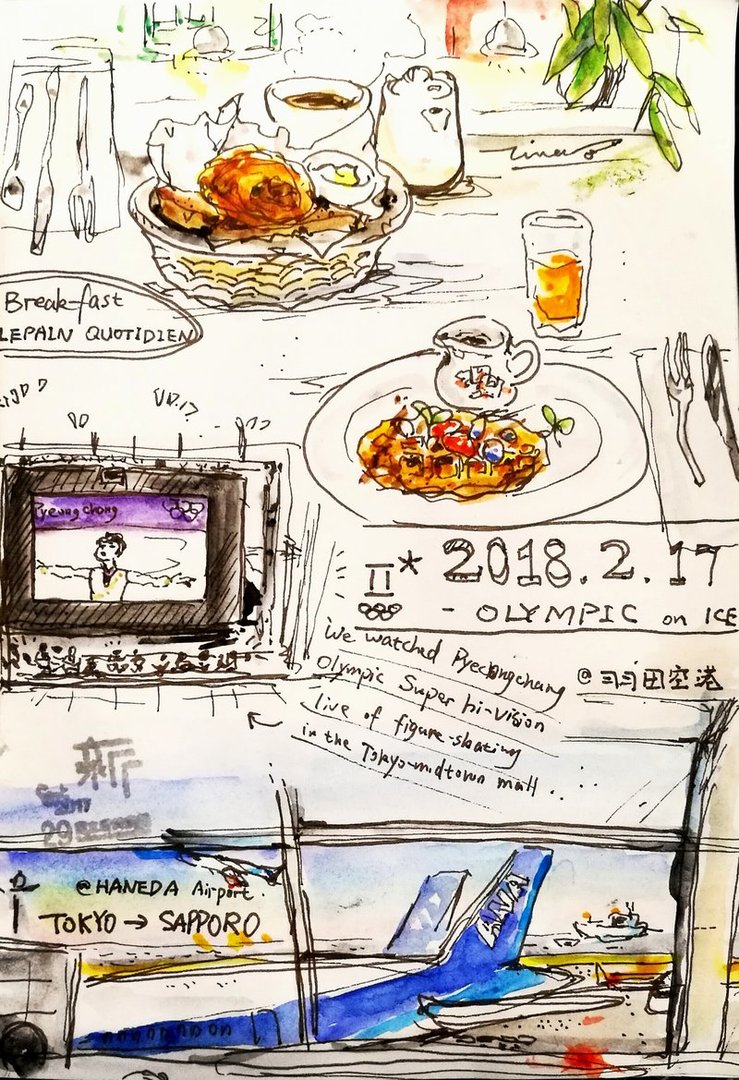 Break-fast
LEPAIN QUOTIDIEN
Pyeongchang
2018.2.17
- OLYMPIC on ICE
We watched Pyeongchang
Olympic Super hi-vision
live of figure-skating
in the Tokyo-midtown mall...
@羽田空港
新
2017
@HANEDA Airport.
TOKYO → SAPPORO
ANA